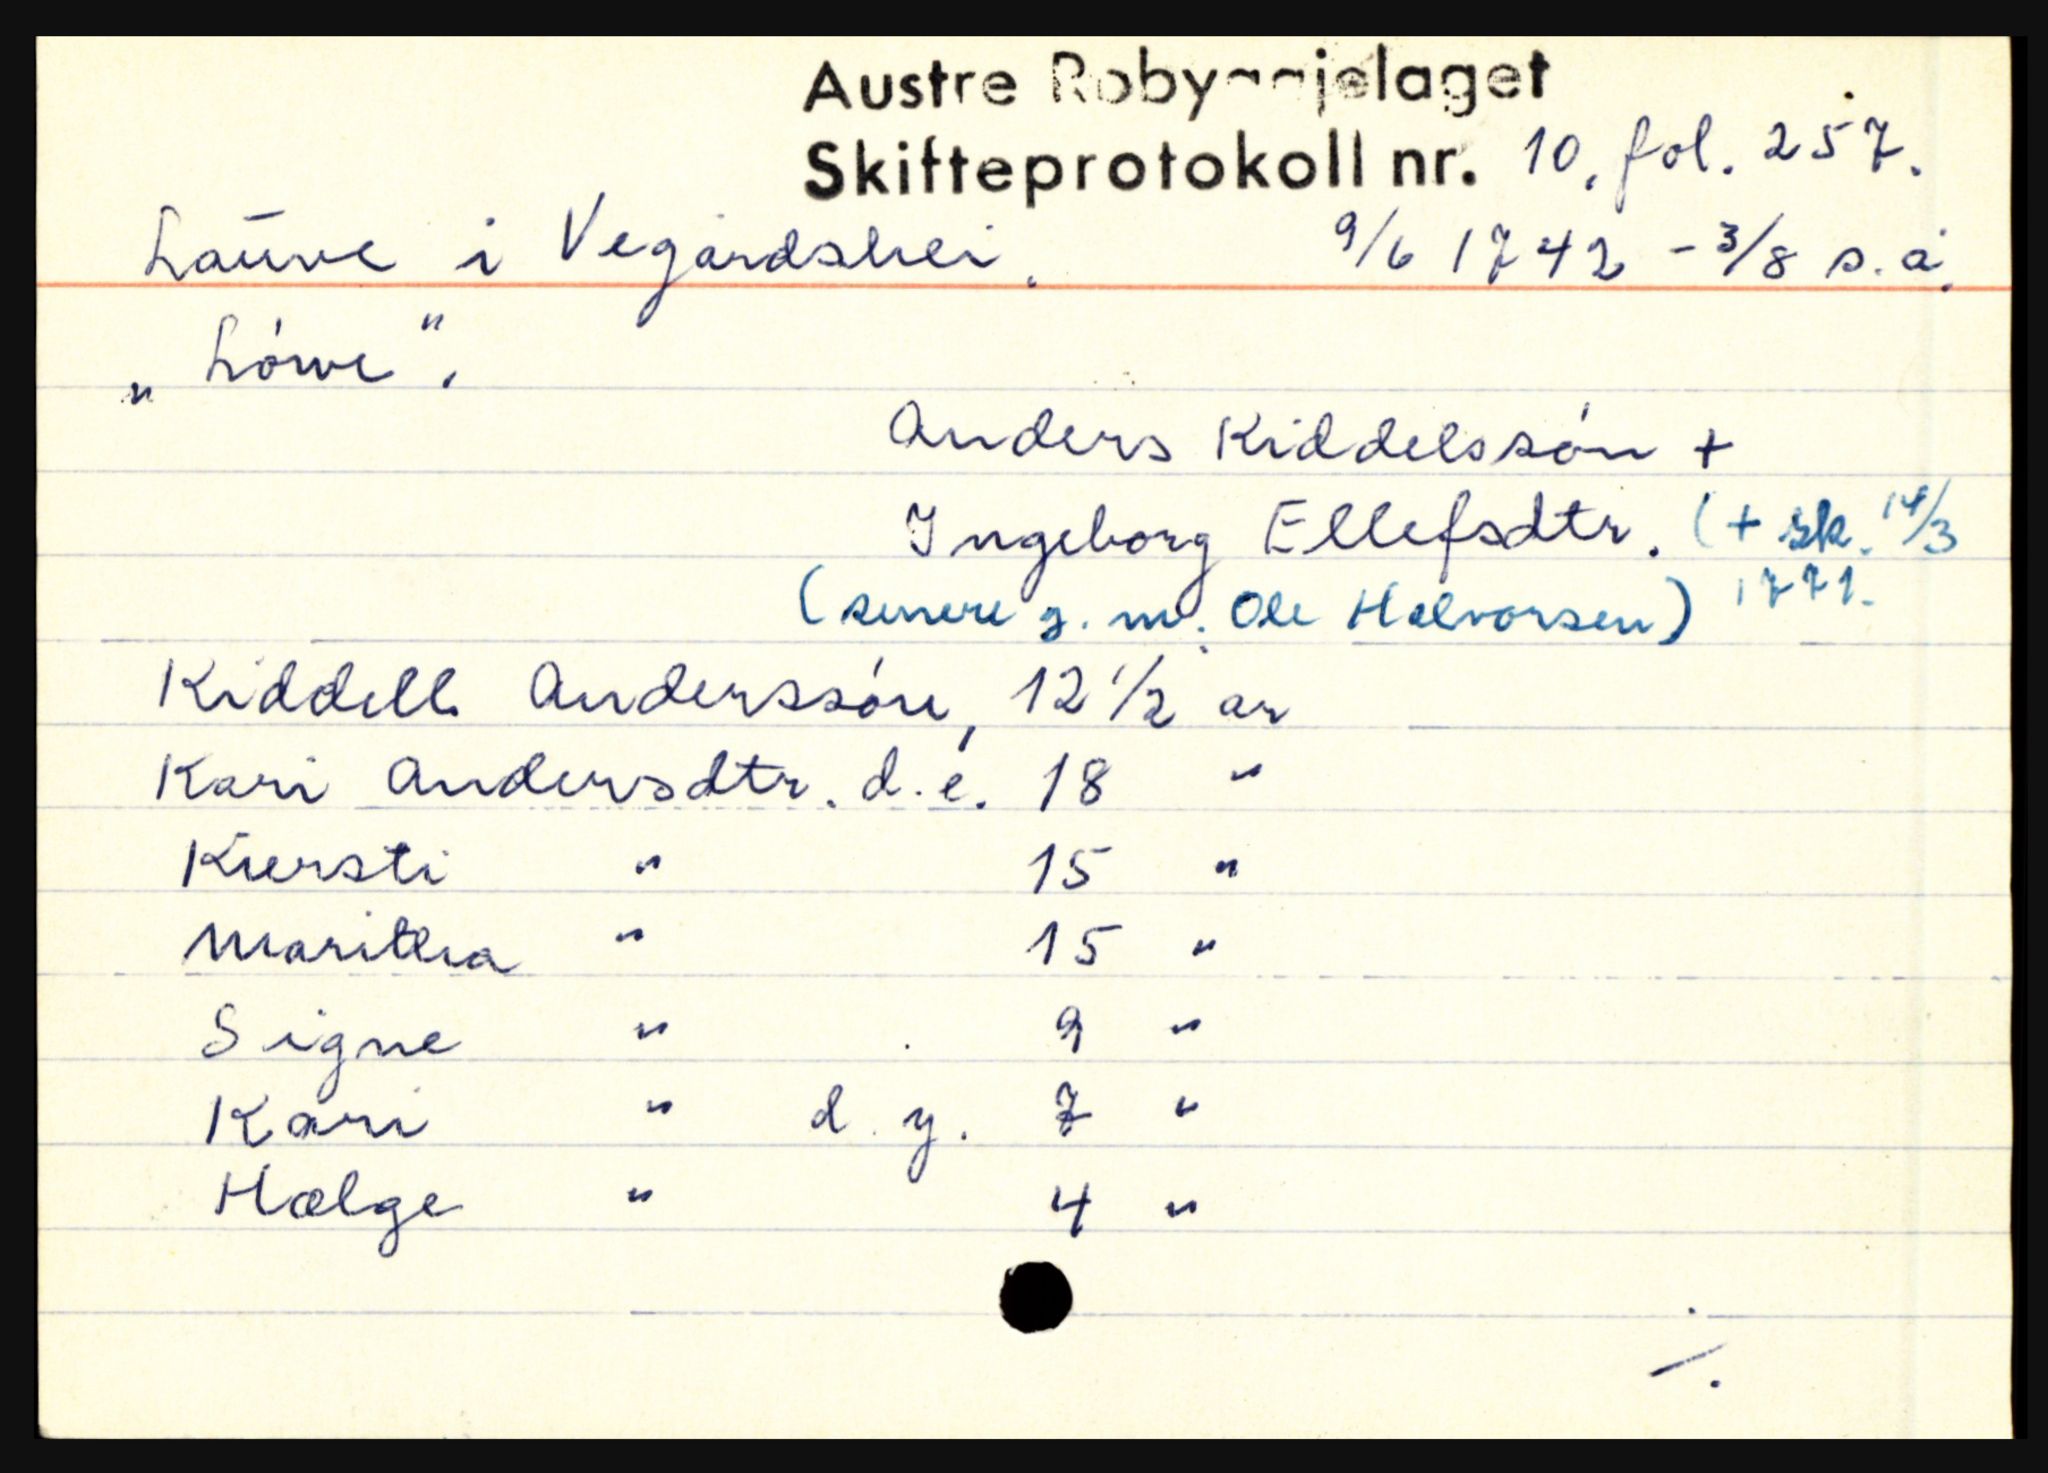 Austre Robyggjelaget
Skifteprotokoll nr. 10, fol. 257.
Lauve i Vegårdshei. 9/6 1742 - 3/8 s.å.
„Lówe".
Anders Kiddelssón +
Ingeborg Ellefsdtr. (+ sk. 14/3
1771.
(senere g. m. Ole Halvorsen)
Kiddell Anderssón, 12 1/2 år
Kari Andersdtr. d.e. 18 "
Kiersti " 15 "
Maritha " 15 "
Signe " 9 "
Kari " d.y. 7 "
Hælge " 4 "